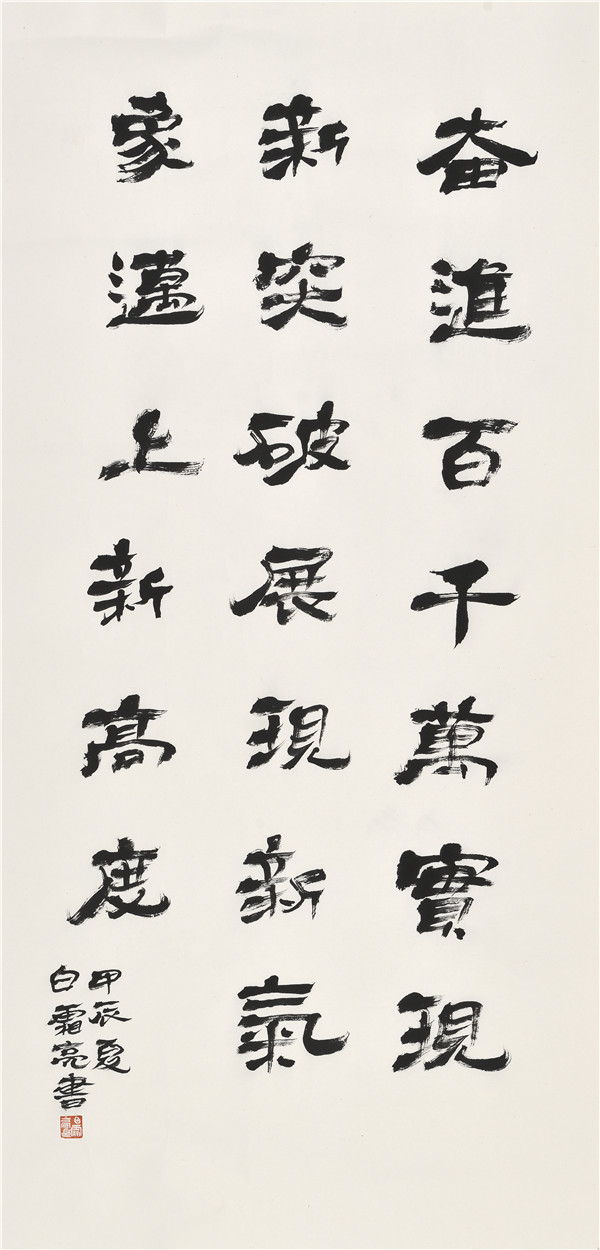 奮進百千萬實現
新突破展現新氣
象邁上新高度
甲辰夏
白霜亮書